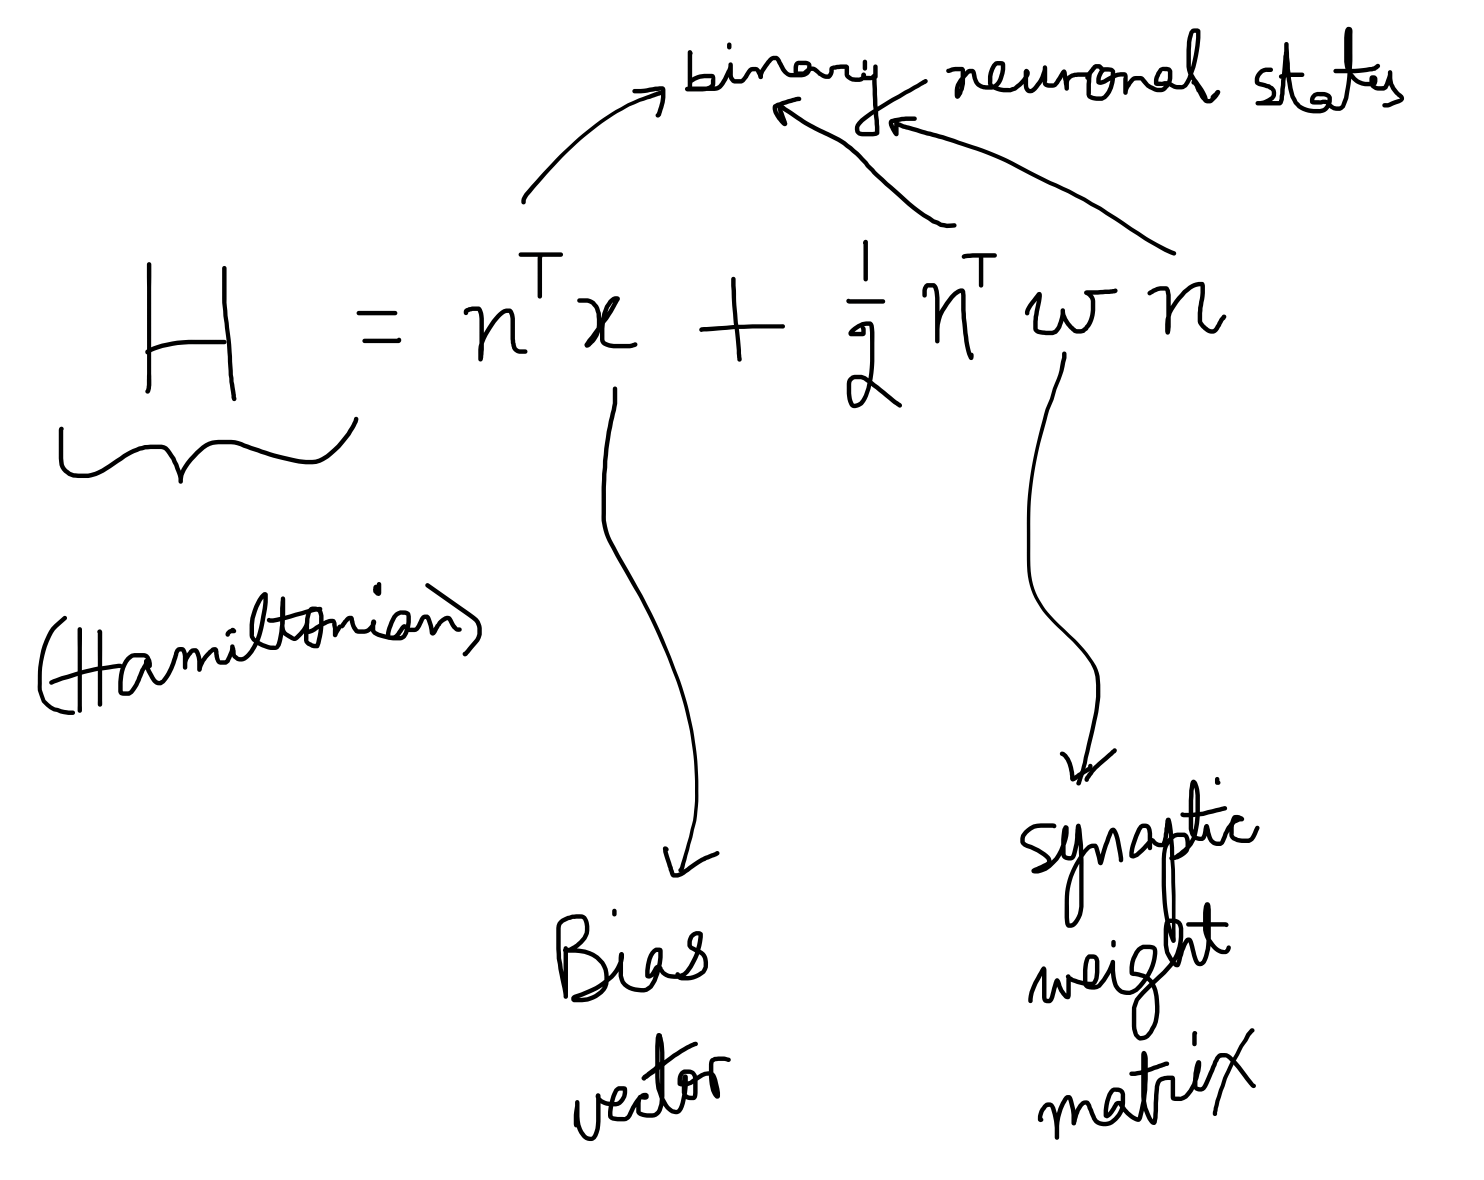 binary neuronal states
H = n^T x + 1/2 n^T w n
(Hamiltonian)
Bias
vector
synaptic
weight
matrix